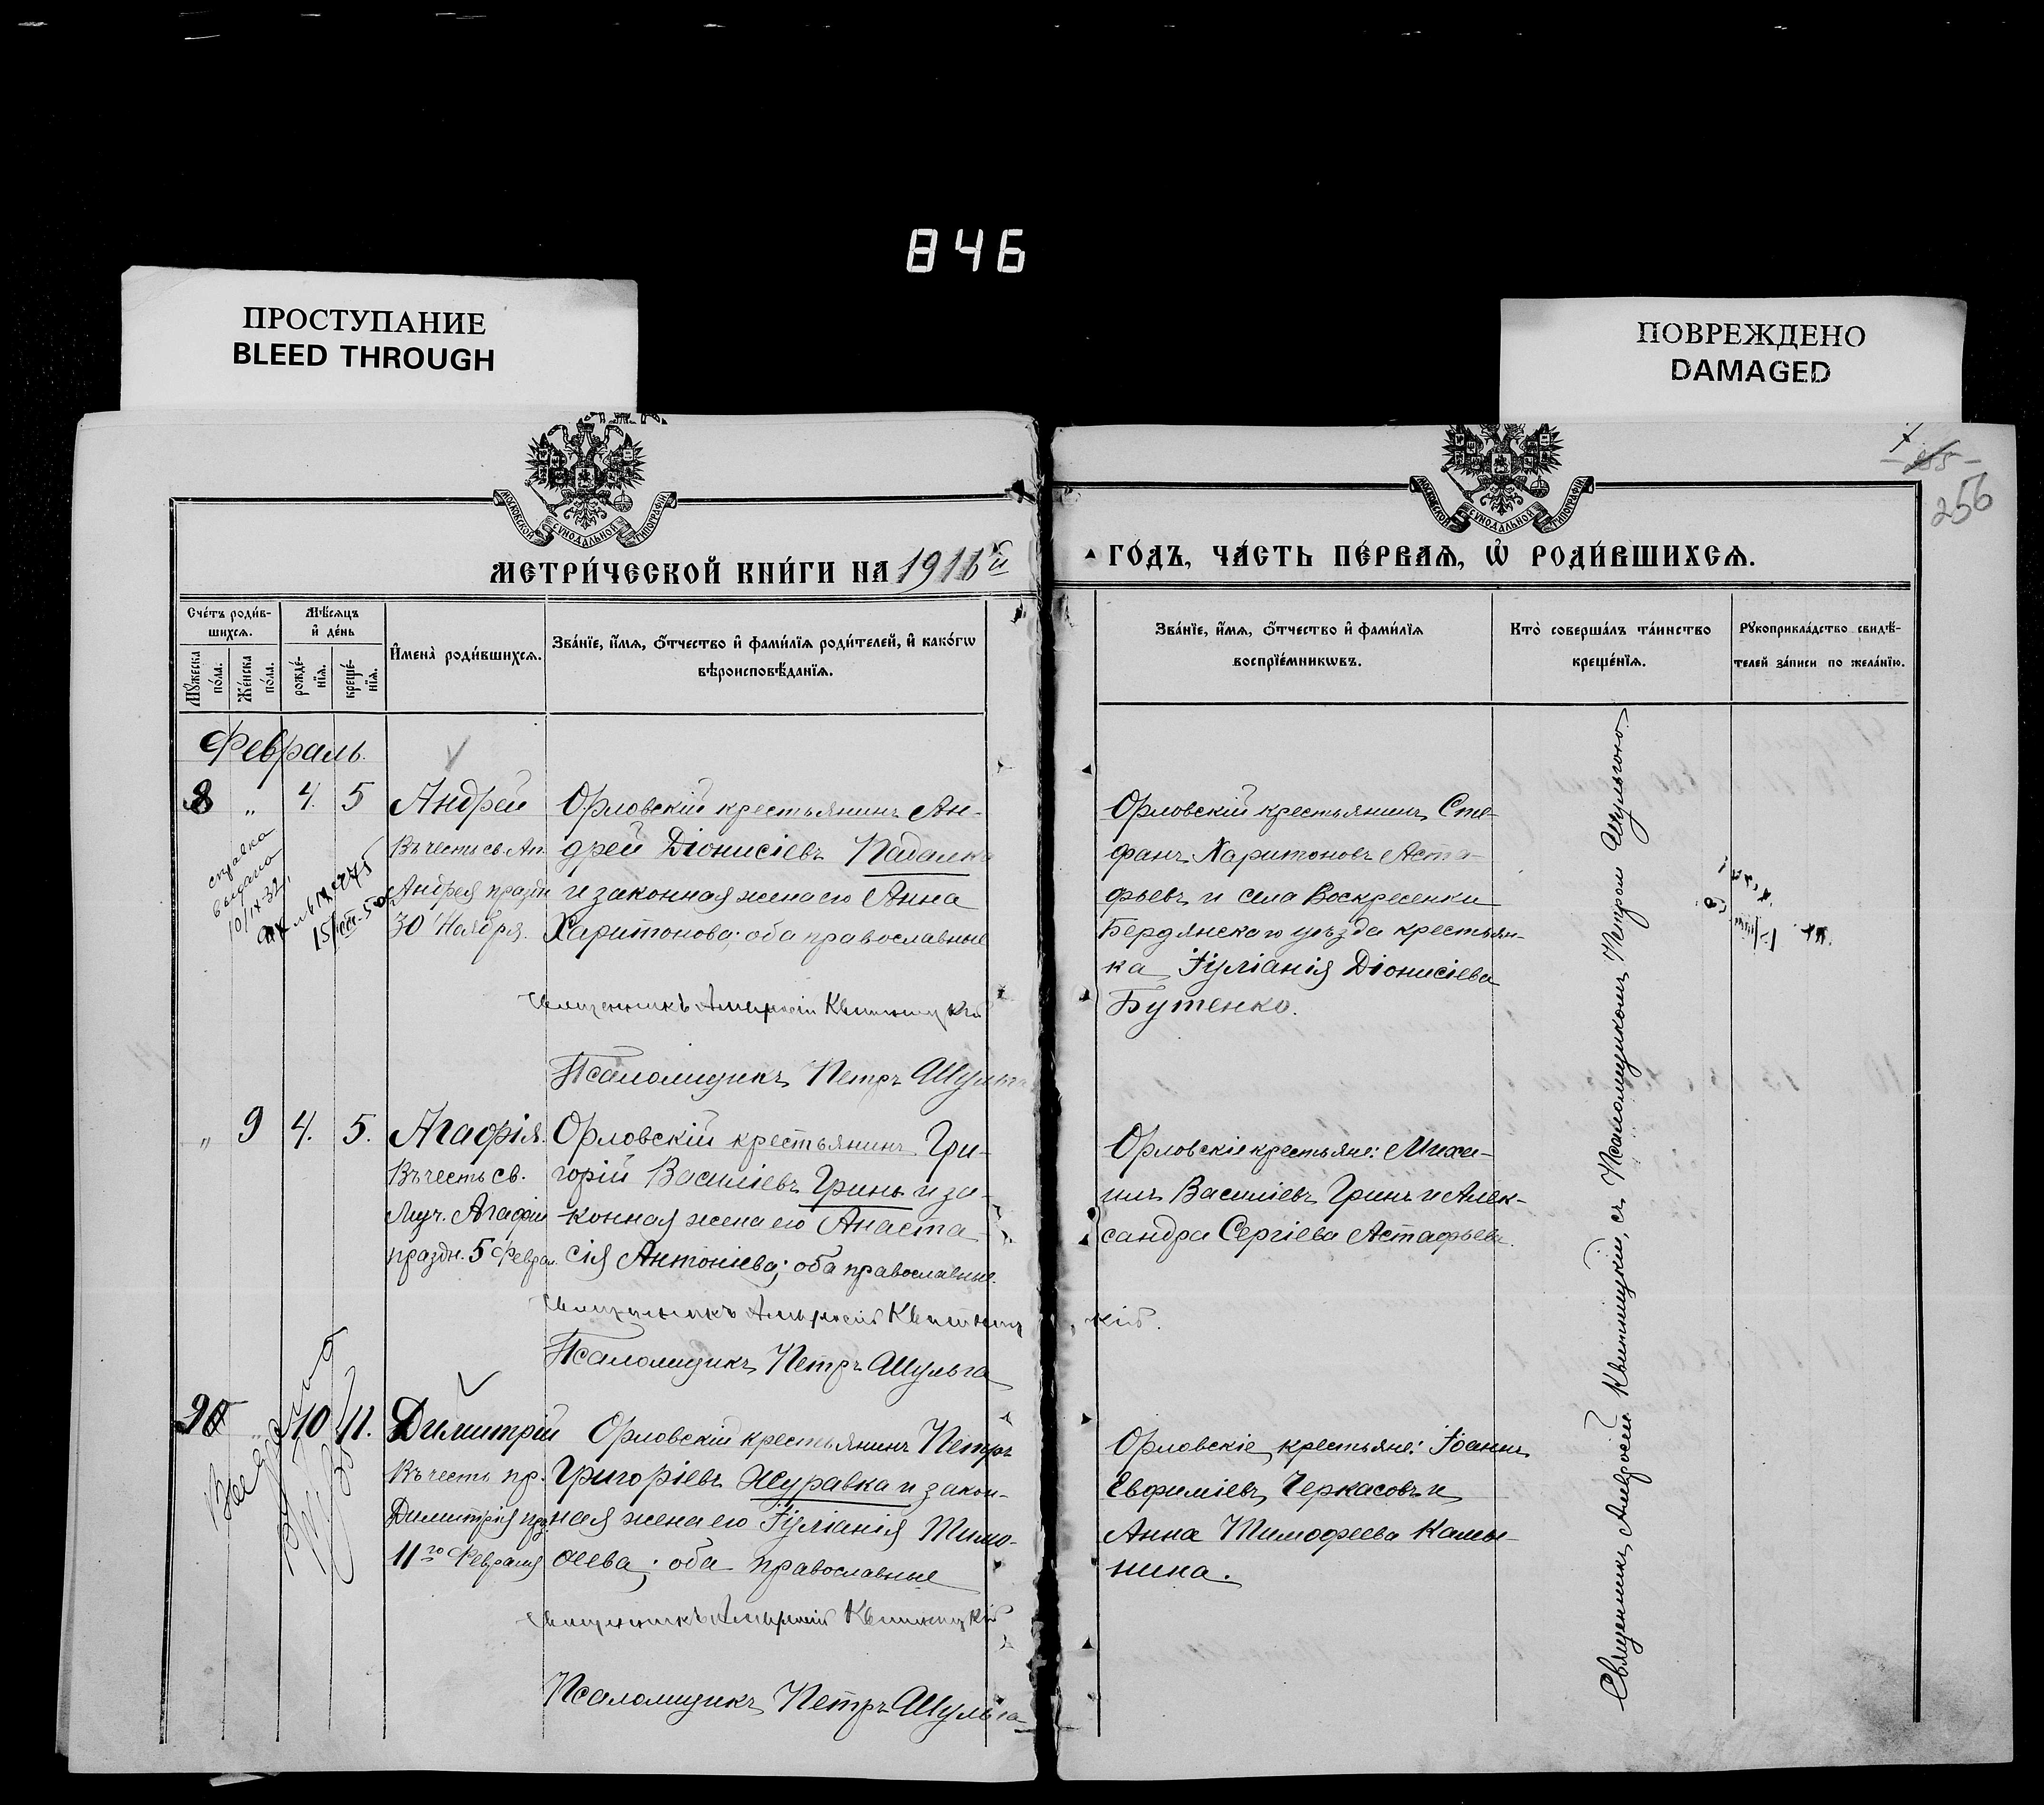 846
ПРОСТУПАНИЕ
BLEED THROUGH
ПОВРЕЖДЕНО
DAMAGED
МОСКОВСКОЙ СѴНОДАЛЬНОЙ ТИПОГРАФІИ
МОСКОВСКОЙ СѴНОДАЛЬНОЙ ТИПОГРАФІИ
256
МЕТРИ́ЧЕСКОЙ КНИ́ГИ НА
ГО́ДЪ, ЧА́СТЬ ПЕ́РВАѦ, Ѽ РОДИ́ВШИХСѦ.
Сче́тъ роди́в-
шихсѧ.
Мѣ́сѧцъ
и҆ де́нь
Мꙋ́жеска
по́ла.
Же́нска
по́ла.
рожде́-
нїѧ.
креще́-
нїѧ.
И҆мена̀ роди́вшихсѧ.
Зва́нїе, и҆́мѧ, ѻ҆́тчество и҆ фами́лїѧ роди́телей, и҆ како́гѡ
вѣроисповѣ́данїѧ.
Зва́нїе, и҆́мѧ, ѻ҆́тчество и҆ фами́лїѧ
воспрїе́мникѡвъ.
Кто̀ соверша́лъ та́инство
креще́нїѧ.
Рꙋкоприкла́дство свидѣ́-
телей за́писи по жела́нїю.
Февраль.
8 " 4. 5 Андрей
Въ честь св. Ап.
Андрея праздн
30 Ноября.
Орловскій крестьянинъ Ан-
дрей Діонисіевъ Падалка
и законная жена его Анна
Харитонова; оба православные
Священникъ Амвросій Квитницкій
Псаломщикъ Петръ Шульга
Орловскій крестьянинъ Сте-
фанъ Харитоновъ Аста-
фьевъ и села Воскресенки
Бердянскаго уѣзда крестьян-
ка Іуліанія Діонисіева
Бутенко.
справка
выдана
10/IX-32
" 9 4. 5. Агафія.
Въ честь св.
Муч. Агафіи
праздн. 5 Феврал.
Орловскій крестьянинъ Гри-
горій Василіевъ Гринь и за-
конная жена его Анаста-
сія Антоніева; оба православные.
Священникъ Амвросій Квитницкій.
Псаломщикъ Петръ Шульга
Орловскіе крестьяне: Миха-
илъ Василіевъ Гринь и Алек-
сандра Сергіева Астафьева.
10 11. Димитрій
Въ честь пр.
Димитрія пр.
11го Февраля
Орловскій крестьянинъ Петръ
Григоріевъ Журавка и закон-
ная жена его Іуліанія Тимо-
ѳеева; оба православные
Священникъ Амвросій Квитницкій
Псаломщикъ Петръ Шульга
Орловскіе крестьяне: Іоаннъ
Евфиміевъ Черкасовъ и
Анна Тимофеева Камы-
нина.
Священникъ Амвросій Квитницкій, съ Псаломщикомъ Петромъ Шульгою.